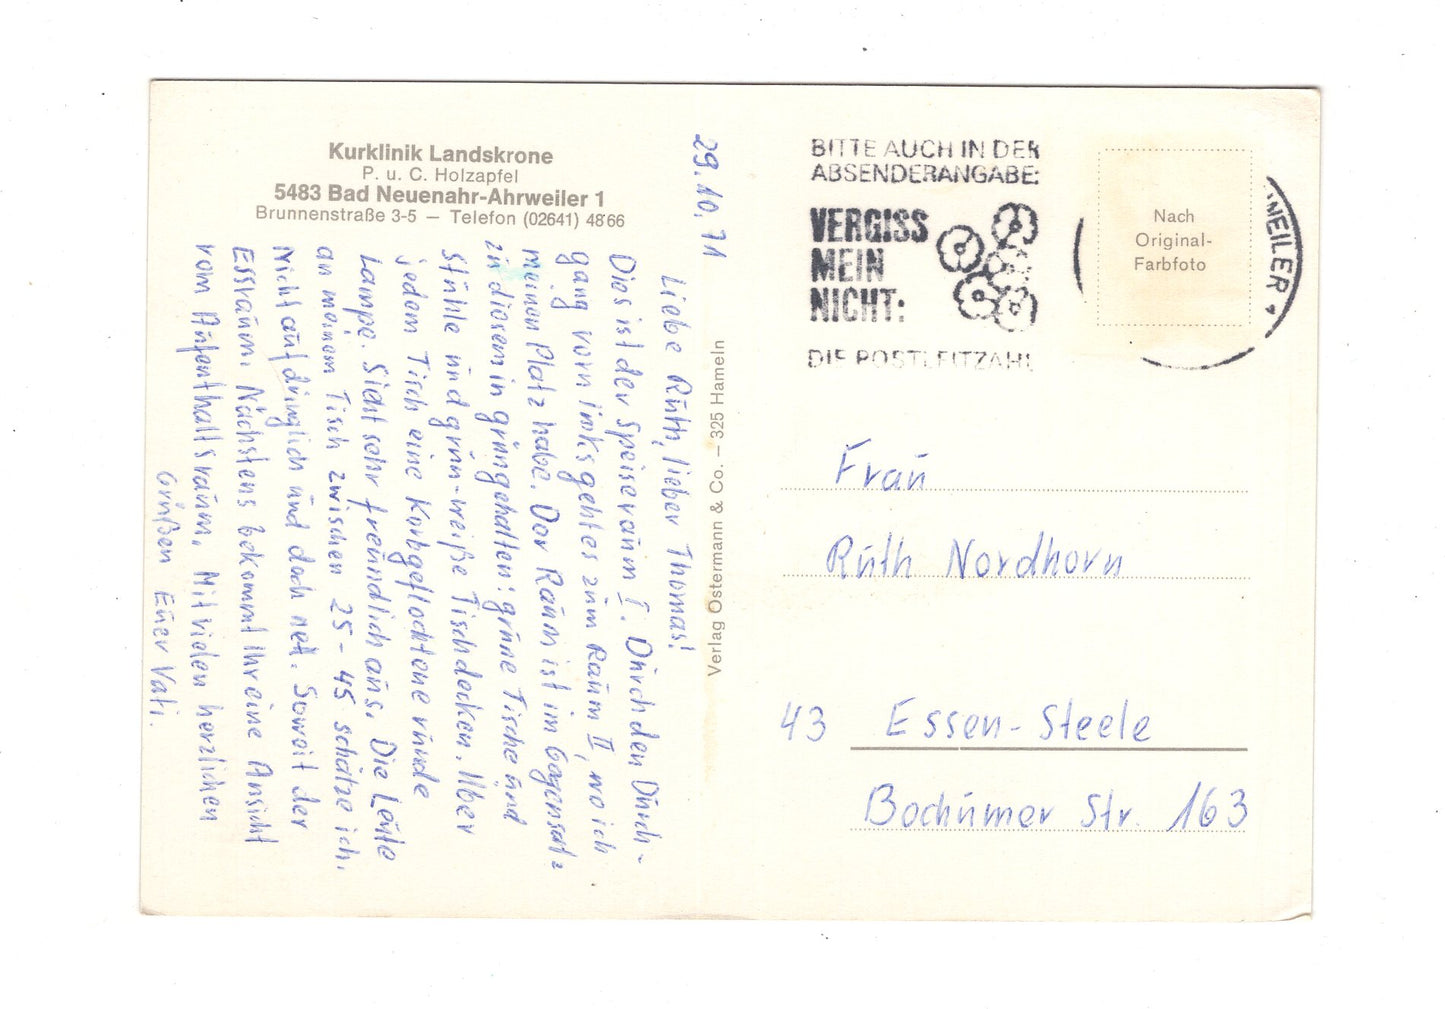 Kurklinik Landskrone
P. u. C. Holzapfel
5483 Bad Neuenahr-Ahrweiler 1
Brunnenstraße 3-5 — Telefon (02641) 4866
29.10.71
Liebe Ruth, lieber Thomas!
Dies ist der Speiseraum I. Durch den Durch-
gang vorn links geht es zum Raum II, wo ich
meinen Platz habe. Der Raum ist im Gegensatz
zu diesem in grün gehalten: grüne Tische und
Stühle und grün-weiße Tischdecken. Über
jedem Tisch eine Korbgeflochtene runde
Lampe. Sieht sehr freundlich aus. Die Leute
an meinem Tisch zwischen 25-45 schätze ich.
Nicht aufdringlich und doch nett. Soweit der
Essraum. Nächstens bekommt Ihr eine Ansicht
vom Aufenthaltsraum. Mit vielen herzlichen
Grüßen Euer Vati.
Verlag Ostermann & Co. — 325 Hameln
BITTE AUCH IN DER
ABSENDERANGABE:
VERGISS
MEIN
NICHT:
DIE POSTLEITZAHL
Nach
Original-
Farbfoto
WEILER
Frau
Ruth Nordhorn
43 Essen-Steele
Bochumer Str. 163